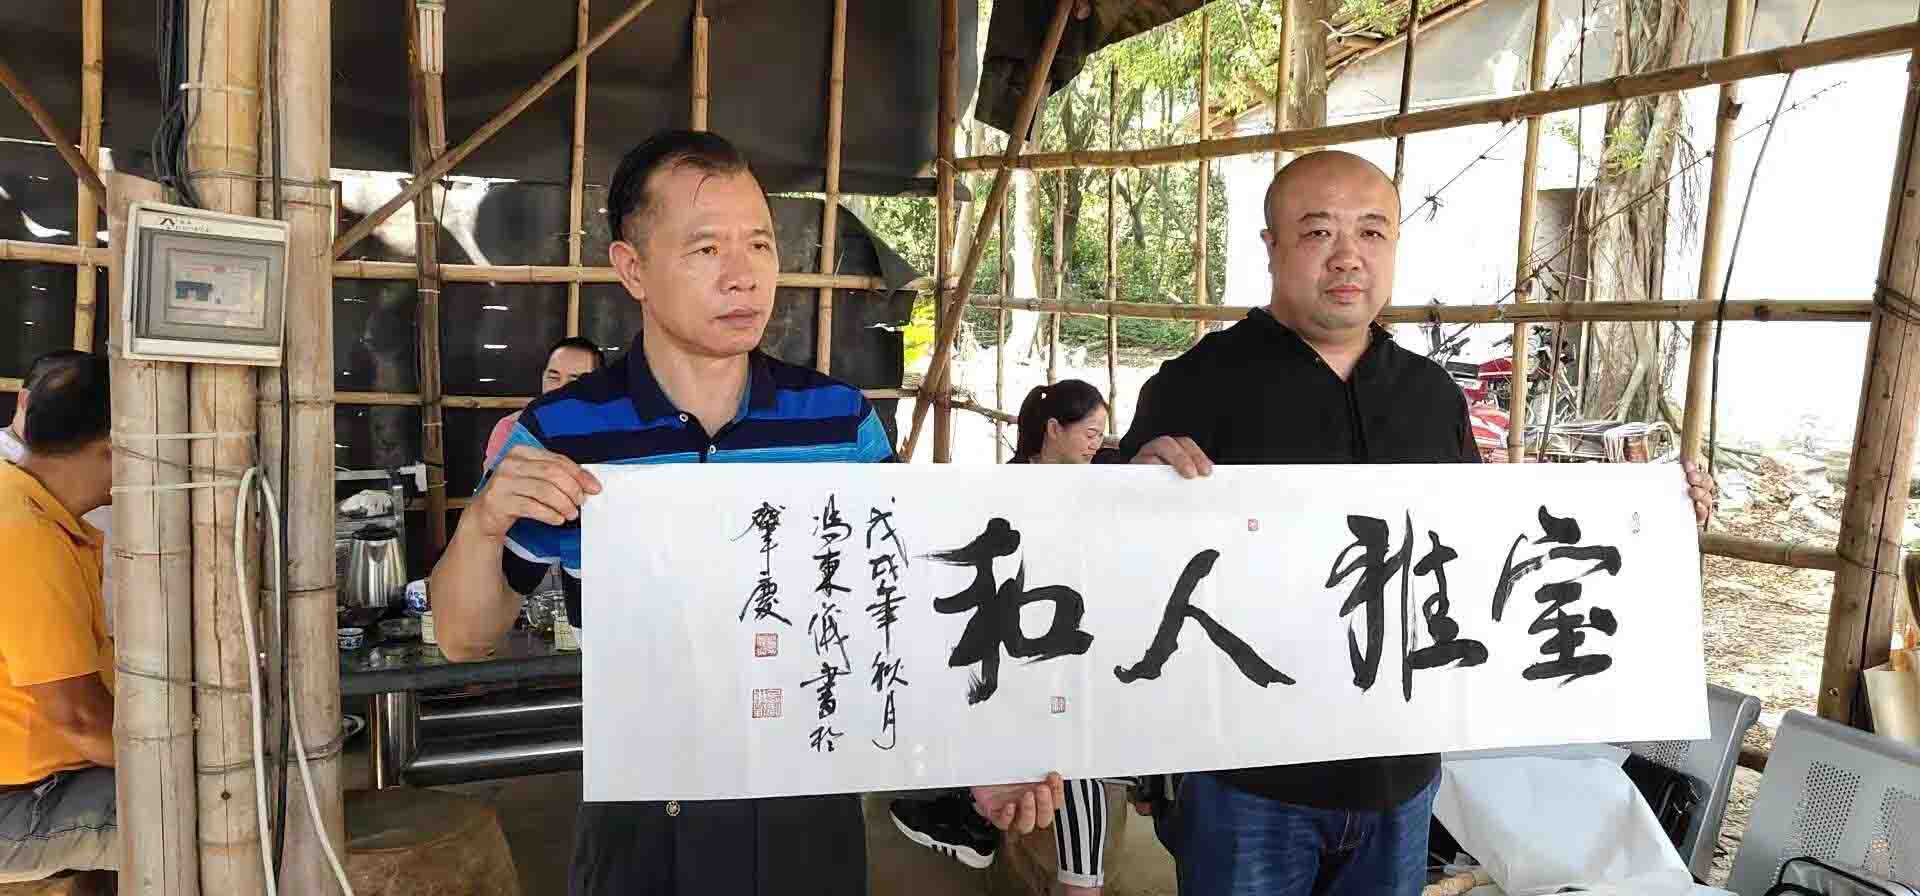 室雅人和
戊戌年秋月
冯東儀書於
肇慶